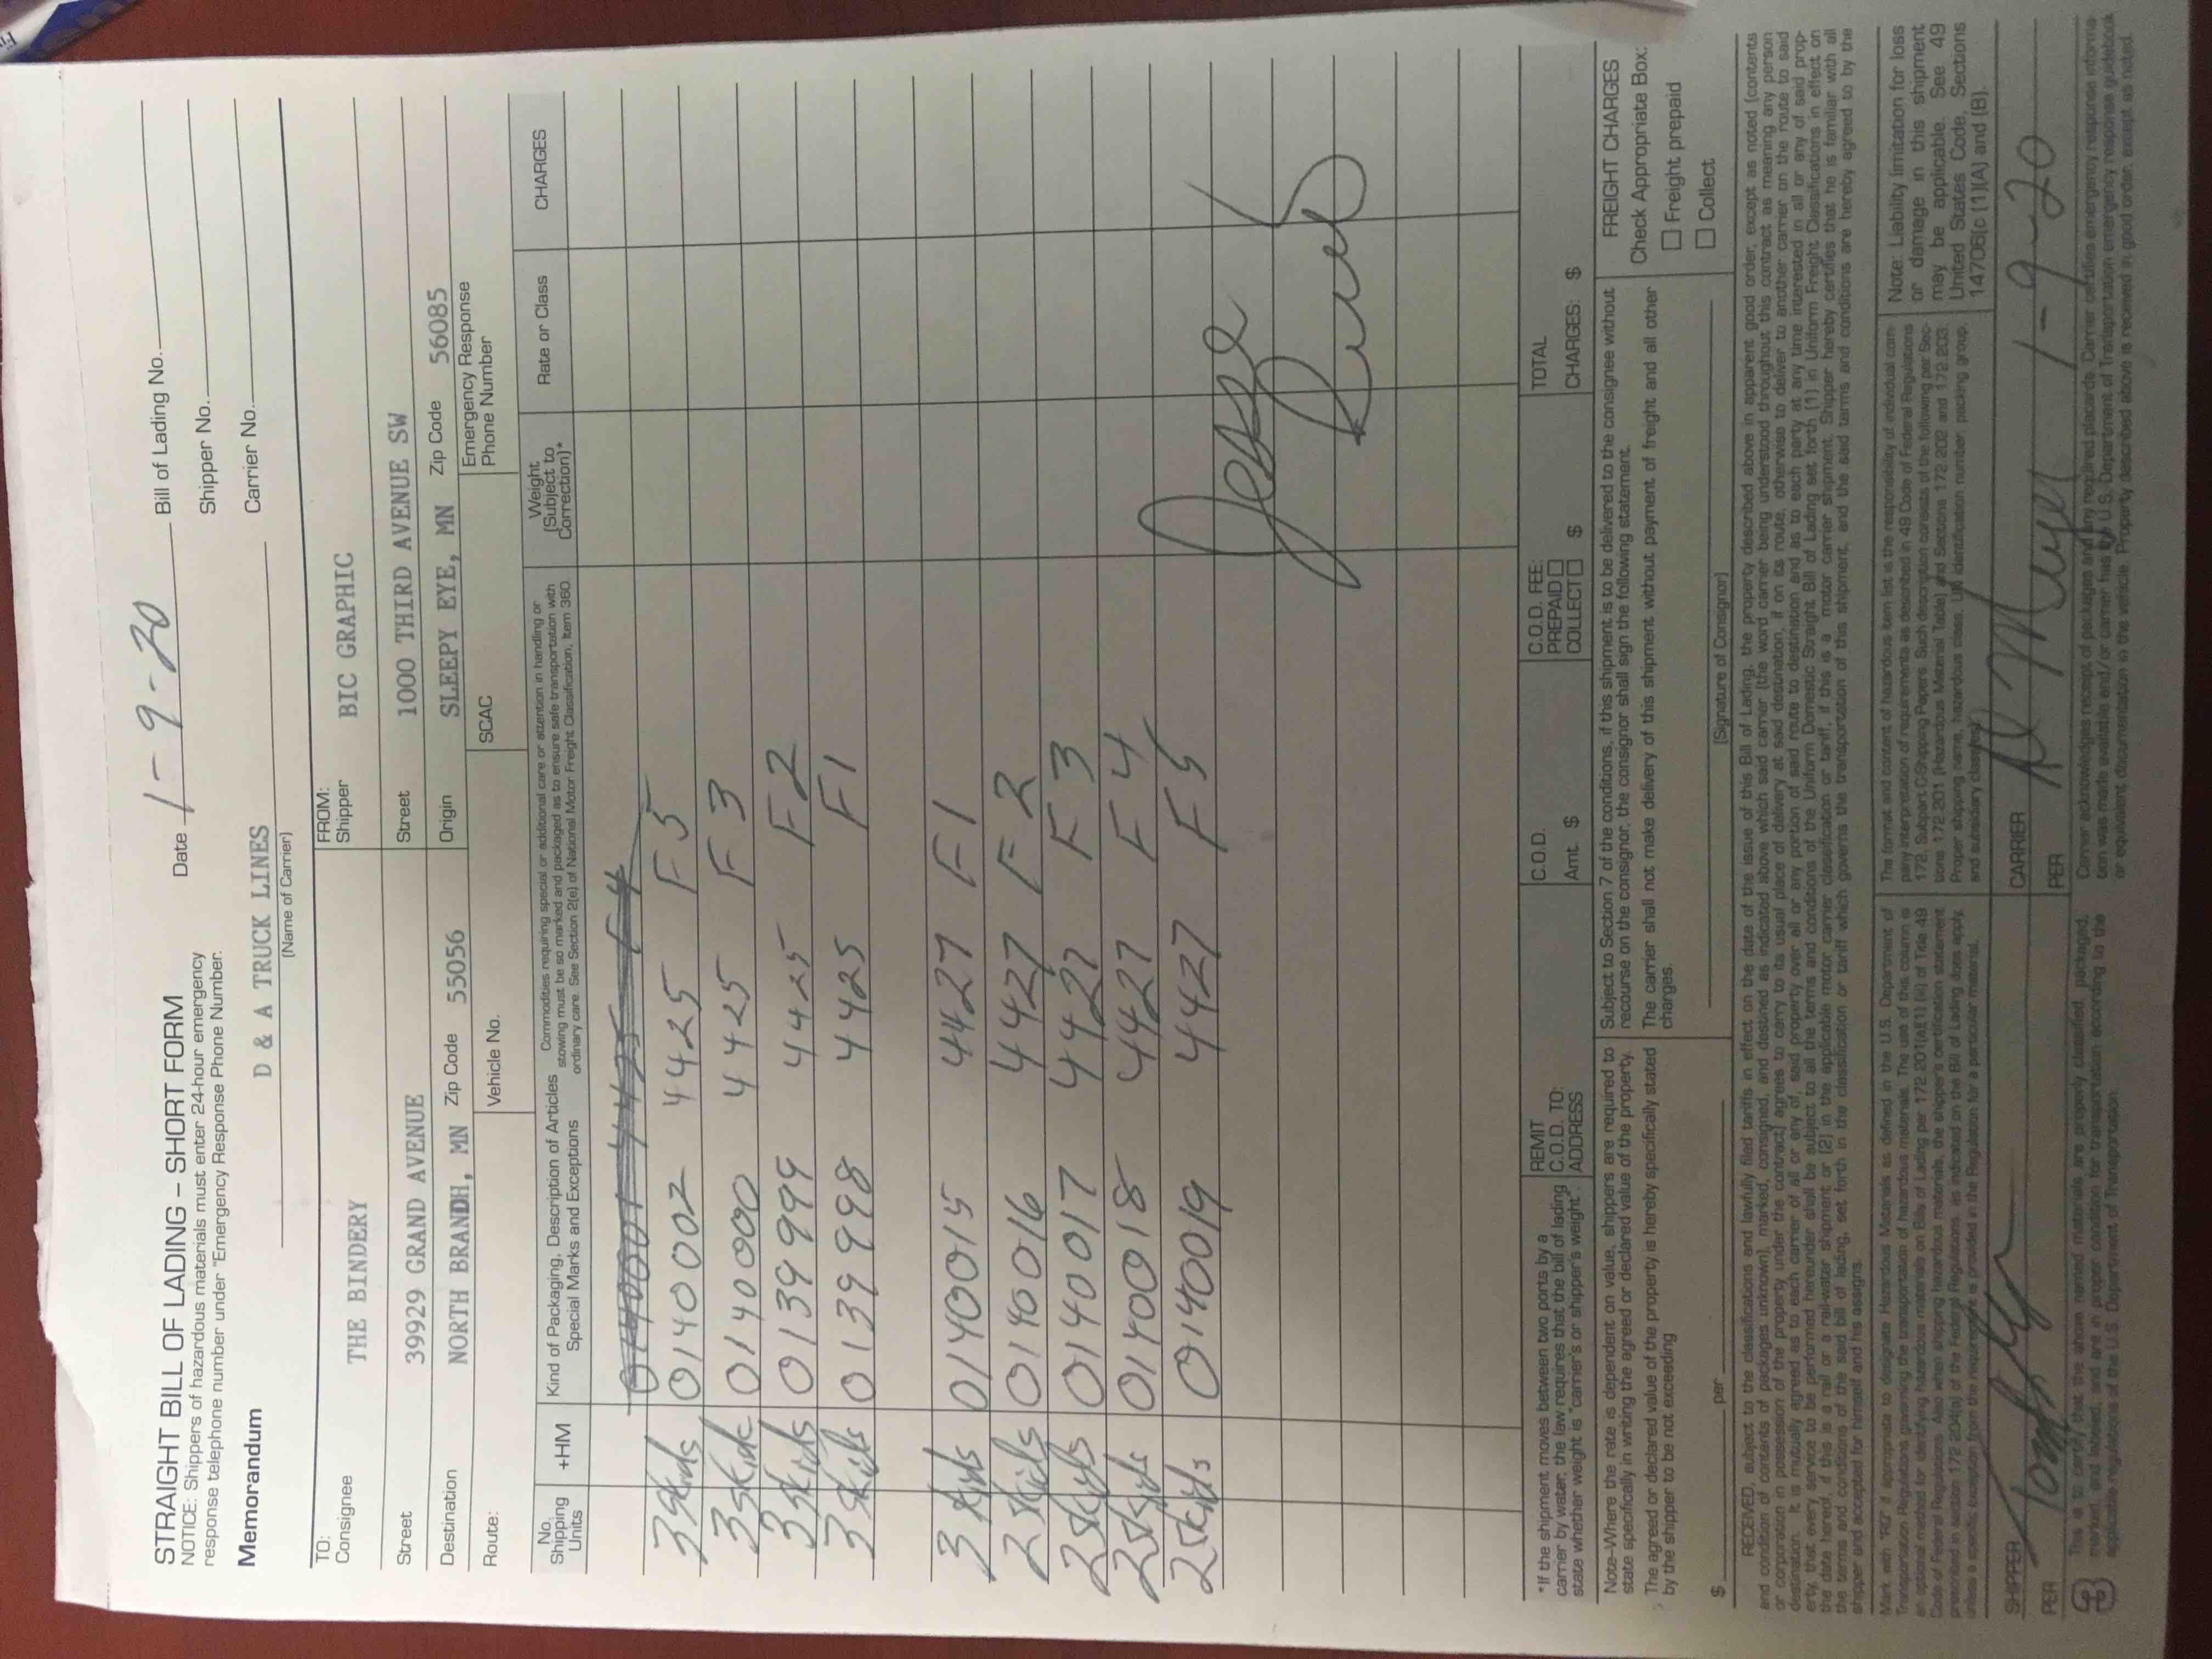 STRAIGHT BILL OF LADING – SHORT FORM
NOTICE: Shippers of hazardous materials must enter 24-hour emergency
response telephone number under "Emergency Response Phone Number.
Date 1-9-20
Bill of Lading No.
Shipper No.
Carrier No.
Memorandum
D & A TRUCK LINES
(Name of Carrier)
TO:
Consignee THE BINDERY
Street 39929 GRAND AVENUE
Destination NORTH BRANDH, MN Zip Code 55056
FROM:
Shipper BIC GRAPHIC
Street 1000 THIRD AVENUE SW
Origin SLEEPY EYE, MN Zip Code 56085
Route:
Vehicle No.
SCAC
Emergency Response
Phone Number
No.
Shipping
Units
+HM
Kind of Packaging, Description of Articles
Special Marks and Exceptions
Commodities requiring special or additional care or attention in handling or
stowing must be so marked and packaged as to ensure safe transportation with
ordinary care. See Section 2(e) of National Motor Freight Classification, Item 360
Weight
(Subject to
Correction)*
Rate or Class
CHARGES
0140001 4425 F4
3 skids 0140002 4425 F5
3 skids 0140000 4425 F3
3 skids 0139999 4425 F2
3 skids 0139998 4425 F1
3 skids 0140015 4427 F1
2 skids 0140016 4427 F2
2 skids 0140017 4427 F3
2 skids 0140018 4427 F4
2 skids 0140019 4427 F5
Jesse
*If the shipment moves between two ports by a
carrier by water, the law requires that the bill of lading
state whether weight is "carrier's or shipper's weight".
REMIT
C.O.D. TO:
ADDRESS
C.O.D.
Amt. $
C.O.D. FEE:
PREPAID
COLLECT $
TOTAL
CHARGES: $
Note–Where the rate is dependent on value, shippers are required to
state specifically in writing the agreed or declared value of the property.
The agreed or declared value of the property is hereby specifically stated
by the shipper to be not exceeding
$ per
Subject to Section 7 of the conditions, if this shipment is to be delivered to the consignee without
recourse on the consignor, the consignor shall sign the following statement.
The carrier shall not make delivery of this shipment without payment of freight and all other
charges.
(Signature of Consignor)
FREIGHT CHARGES
Check Appropriate Box:
Freight prepaid
Collect
RECEIVED, subject to the classifications and lawfully filed tariffs in effect on the date of the issue of this Bill of Lading, the property described above in apparent good order, except as noted (contents
and condition of contents of packages unknown), marked, consigned, and destined as indicated above which said carrier (the word carrier being understood throughout this contract as meaning any person
or corporation in possession of the property under the contract) agrees to carry to its usual place of delivery at said destination, if on its route, otherwise to deliver to another carrier on the route to said
destination. It is mutually agreed as to each carrier of all or any of, said property over all or any portion of said route to destination and as to each party at any time interested in all or any of said prop-
erty, that every service to be performed hereunder shall be subject to all the terms and conditions of the Uniform Domestic Straight Bill of Lading set forth (1) in Uniform Freight Classifications in effect on
the date hereof, if this is a rail or a rail-water shipment, or (2) in the applicable motor carrier classification or tariff, if this is a motor carrier shipment. Shipper hereby certifies that he is familiar with all
the terms and conditions of the said bill of lading, set forth in the classification or tariff which governs the transportation of this shipment, and the said terms and conditions are hereby agreed to by the
shipper and accepted for himself and his assigns.
Mark with "RQ" if appropriate to designate Hazardous Materials as defined in the U.S. Department of
Transportation Regulations governing the transportation of hazardous materials. The use of this column is
an optional method for identifying hazardous materials on Bills of Lading per 172.201(a)(1)(iii) of Title 49
Code of Federal Regulations. Also when shipping hazardous materials, the shipper's certification statement
prescribed in section 172.204(a) of the Federal Regulations, as indicated on the Bill of Lading does apply,
unless a specific exception from the requirement is provided in the Regulation for a particular material.
The format and content of hazardous item list is the responsibility of individual com-
pany interpretation of requirements as described in 49 Code of Federal Regulations
172, Subpart C-Shipping Papers. Such description consists of the following per Sec-
tions 172.201 (Hazardous Material Table) and Sections 172.202 and 172.203.
Proper shipping name, hazardous class, UN identification number, packing group,
and subsidiary class(es)
Note: Liability limitation for loss
or damage in this shipment
may be applicable. See 49
United States Code, Sections
14706(c (1)(A) and (B).
SHIPPER
PER
CARRIER
PER
1-9-20
This is to certify that the above named materials are properly classified, packaged,
marked, and labeled, and are in proper condition for transportation according to the
applicable regulations of the U.S. Department of Transportation.
Carrier acknowledges receipt of packages and any required placards. Carrier certifies emergency response informa-
tion was made available and/or carrier has the U.S. Department of Transportation emergency response guidebook
or equivalent documentation in the vehicle. Property described above is received in good order, except as noted.